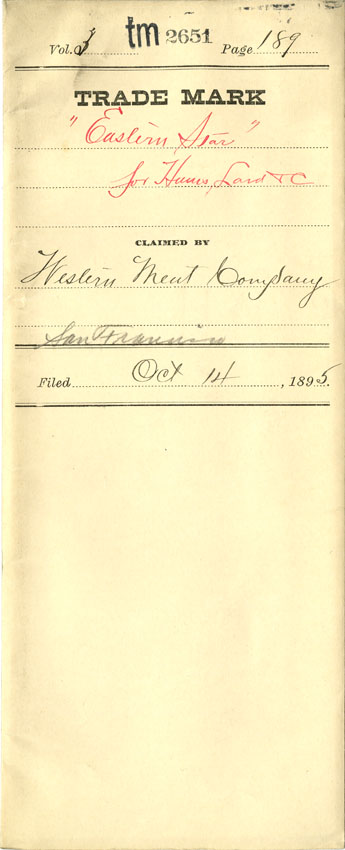 tm 2651
Vol. 3 Page 189
TRADE MARK
"Eastern Star"
for Hams, Lard & C
CLAIMED BY
Western Meat Company
San Francisco
Filed Oct 14, 1895.